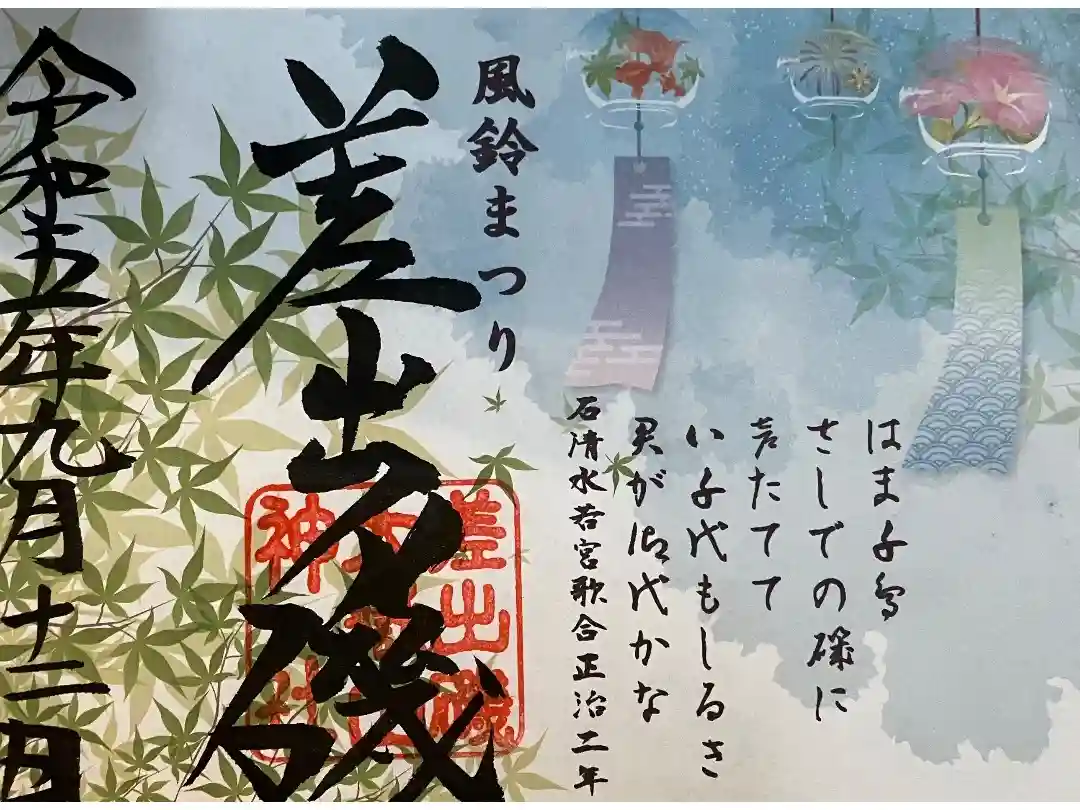 はま千鳥
さしでの磯に
声たてて
い千代もしるき
君が御代かな
石清水若宮歌合正治二年
風鈴まつり
差出磯
差出磯
神社
令和五年九月十二日